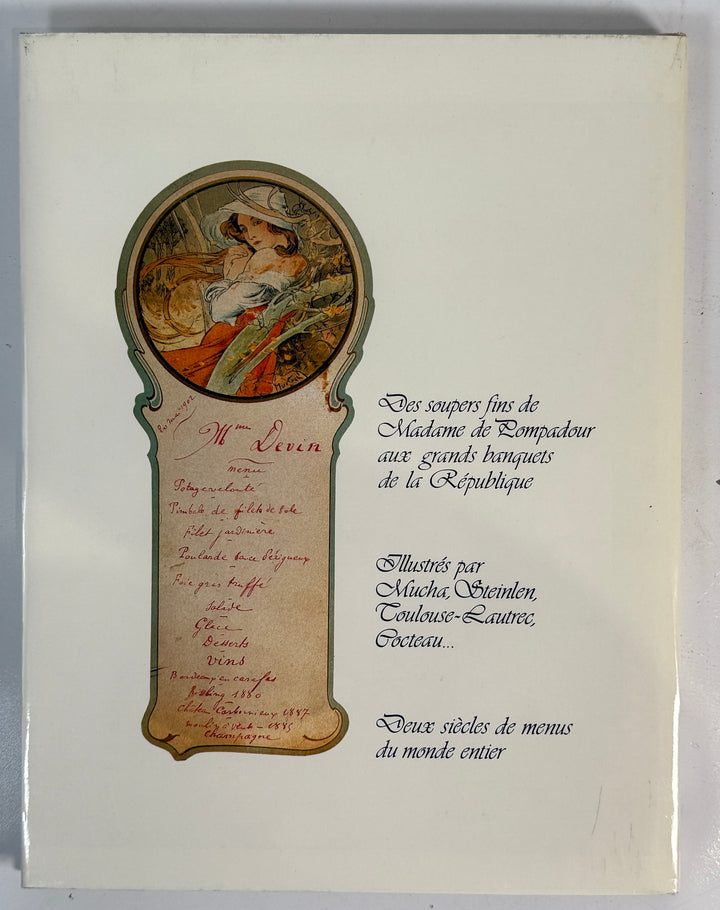 20 mai 1902
Mme Devin
menu
Potage velouté
Timbale de filets de sole
Filet jardinière
Poularde sauce Périgueux
Foie gris truffé
Salade
Glace
Desserts
vins
Bordeaux en carafes
1880
Château Carbonnieux 1887
moulin à vent - 1885
Champagne
Mucha
Des soupers fins de
Madame de Pompadour
aux grands banquets
de la République
Illustrés par
Mucha, Steinlen,
Toulouse-Lautrec,
Cocteau...
Deux siècles de menus
du monde entier